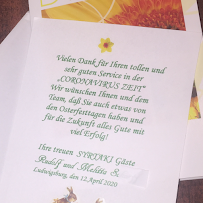 Vielen Dank für Ihren tollen und
sehr guten Service in der
„CORONAVIRUS ZEIT"
Wir wünschen Ihnen und dem
Team, daß Sie auch etwas von
den Osterfesttagen haben und
für die Zukunft alles Gute mit
viel Erfolg!
Ihre treuen SYRTAKI Gäste
Rudolf und S.
Ludwigsburg, den 12.April 2020